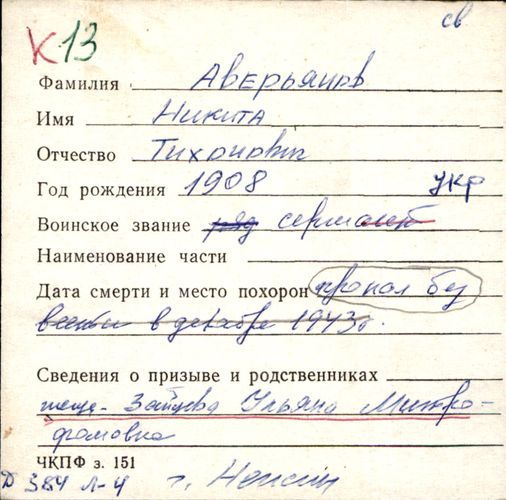 св
К13
Фамилия Аверьянов
Имя Никита
Отчество Тихонович
Год рождения 1908 укр
Воинское звание ряд сержант
Наименование части
Дата смерти и место похорон пропал без
вести в декабре 1943г.
Сведения о призыве и родственниках
теща - Зайцева Ульяна Митро-
фановна
ЧКПФ з. 151
Д 384 л-4 г.